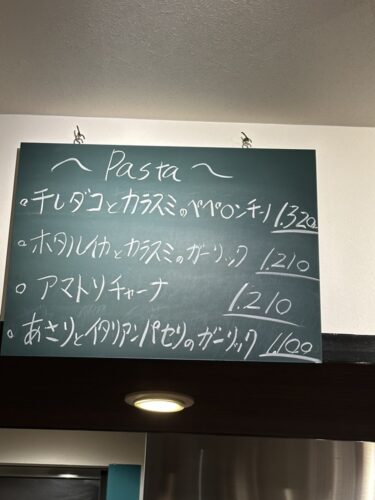 〜 Pasta 〜
。チレダコとカラスミのペペロンチーノ 1.320
。ホタルイカとカラスミのガーリック 1.210
。アマトリチャーナ 1.210
。あさりとイタリアンパセリのガーリック 1.100